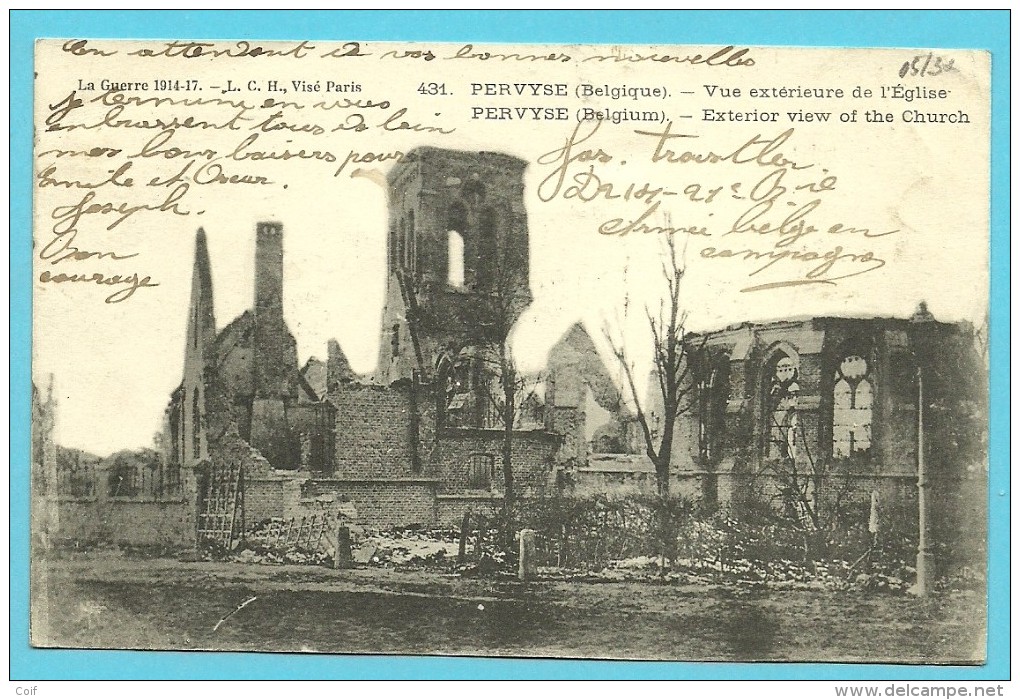 En attendant de vos bonnes nouvelles
La Guerre 1914-17. — L. C. H., Visé Paris
431. PERVYSE (Belgique). — Vue extérieure de l'Église
PERVYSE (Belgium). — Exterior view of the Church
je termine en vous
embrassent tous de loin
mes bons baisers pour
Emile et
Joseph.
Bon
courage
D
Armée belge en
campagne
Coif
www.delcampe.net